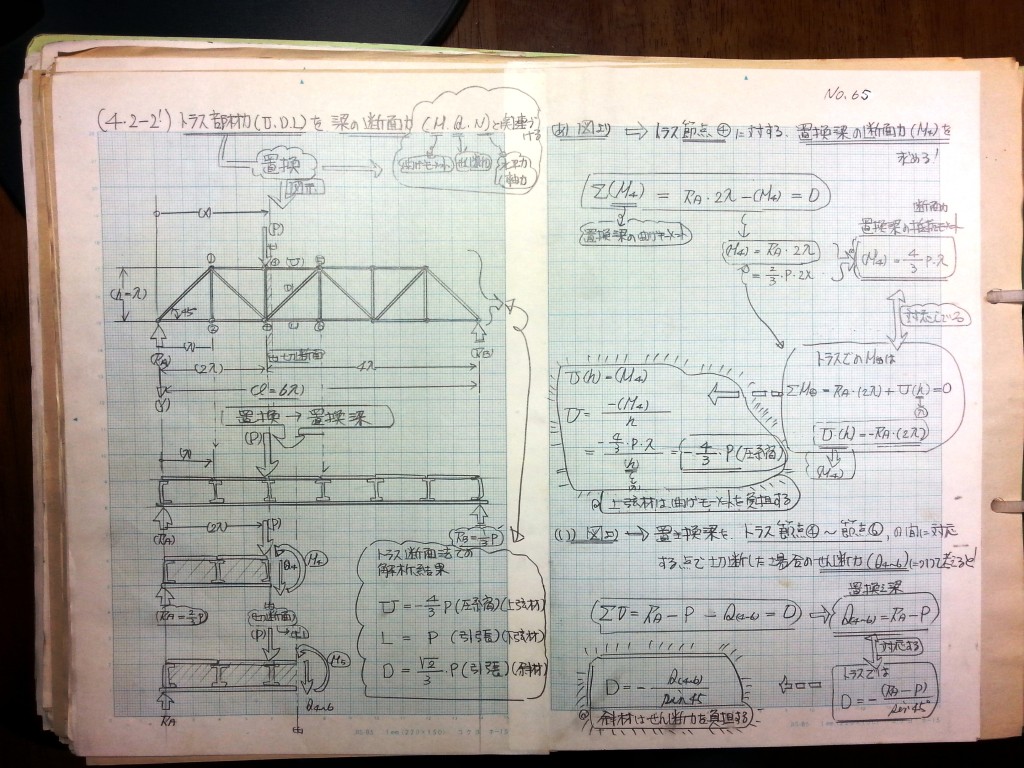 NO. 65
(4・2-2') トラス部材力(U.D.L)を 梁の断面力(M.Q.N)と関連づける
置換
曲げモーメント
せん断力
軸力
(P)
(h=λ)
45°
(RA)
(RB)
(λ)
切断面
(2λ)
4λ
(Y)
(ℓ=6λ)
置換 → 置換梁
(P)
(λ)
(RA)
(2λ)
(P)
(RB=1/3P)
Q4
M4
(RA=2/3P)
切断面
(P)
M5
RA
Q4~6
トラス断面法での
解析結果
U=-4/3P(圧縮)(上弦材)
L = P (引張)(下弦材)
D = √2/3・P(引張)(斜材)
(あ) ⇒ トラス節点④に対する、置換梁の断面力(M4)を
求める!
Σ(M4) = RA・2λ-(M4) = 0
置換梁の曲げモーメント
(M4)=RA・2λ
=2/3・P・2λ
断面力
置換梁の
(M4)=4/3P・λ
対応している
トラスでのM④は
ΣM④=RA・(2λ)+U(h)=0
(λ)
U(h)=-RA・(2λ)
(M4)
U(h)=(M4)
U= -(M4)/h
= -4/3・P・λ/h = -4/3・P(圧縮)
(λ)
◎ 上弦材は曲げモーメントを負担する
(い) ⇒ 置き換梁を、トラス節点④~節点⑥、の間に対応
する点で切断した場合のせん断力(Q4~6)について考えると
(ΣV=RA-P-Q(4~6)=0)
置換え梁
Q(4~6)=RA-P
対応する
トラスでは
D=-(RA-P)/sin45°
D=-Q(4~6)/sin45
◎ 斜材はせん断力を負担する